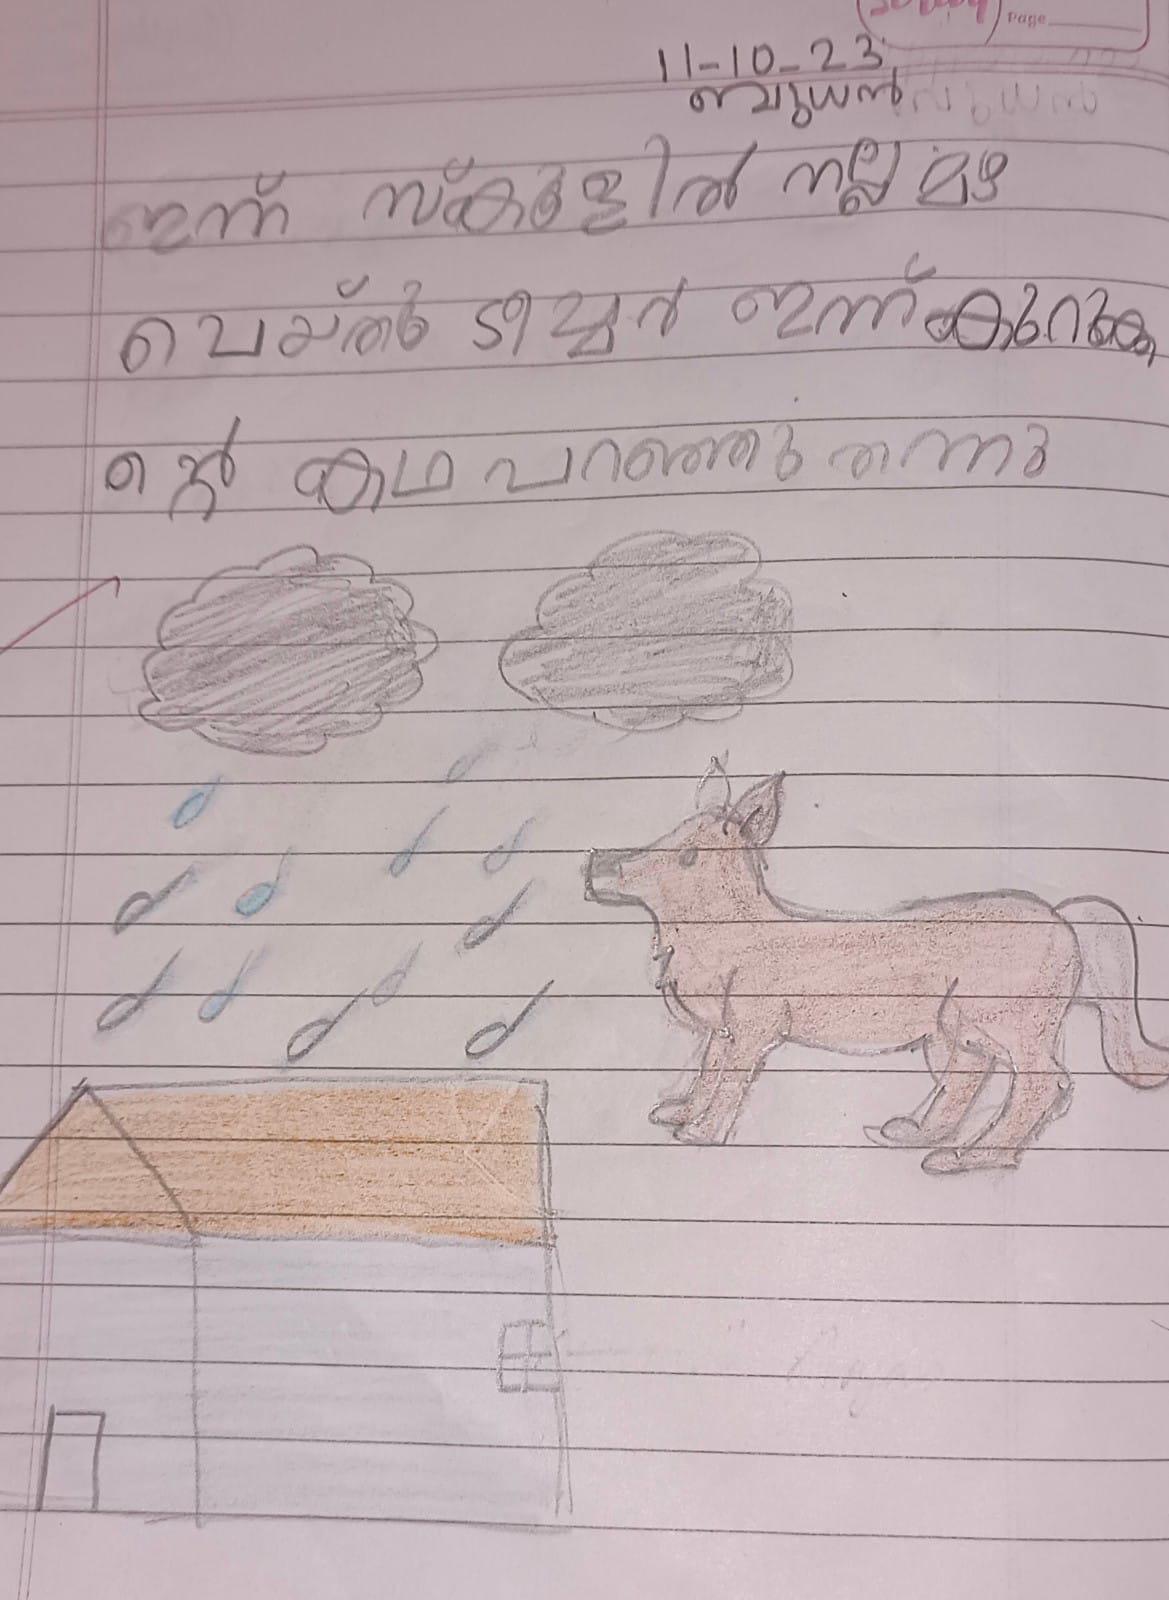 Page
11-10-23
ബുധൻ
ഇന്ന് സ്കൂളിൽ നല്ല മഴ
പെയ്തു ടീച്ചർ ഇന്ന് കുറുക്ക
ന്റെ കഥ പറഞ്ഞു തന്നു